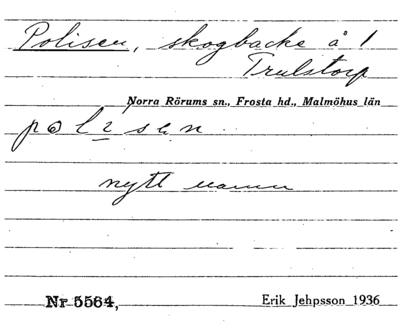 Polisen, skogbacke å 1
Trulstorp
Norra Rörums sn., Frosta hd., Malmöhus län
polisen
nytt namn
Nr 5564,
Erik Jehpsson 1936